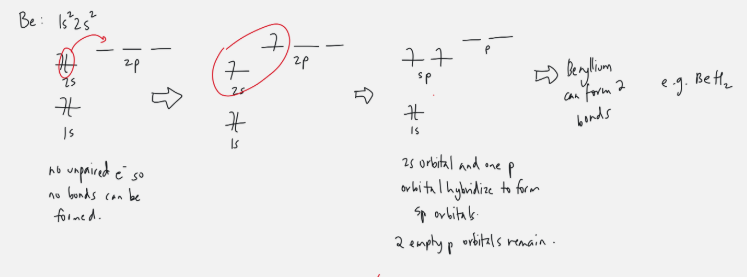 Be: 1s²2s²
2s
2p
1s
no unpaired e⁻ so
no bonds can be
formed.
2s
2p
1s
sp
p
1s
2s orbital and one p
orbital hybridize to form
sp orbitals.
2 empty p orbitals remain.
Beryllium
can form 2
bonds
e.g. BeH₂